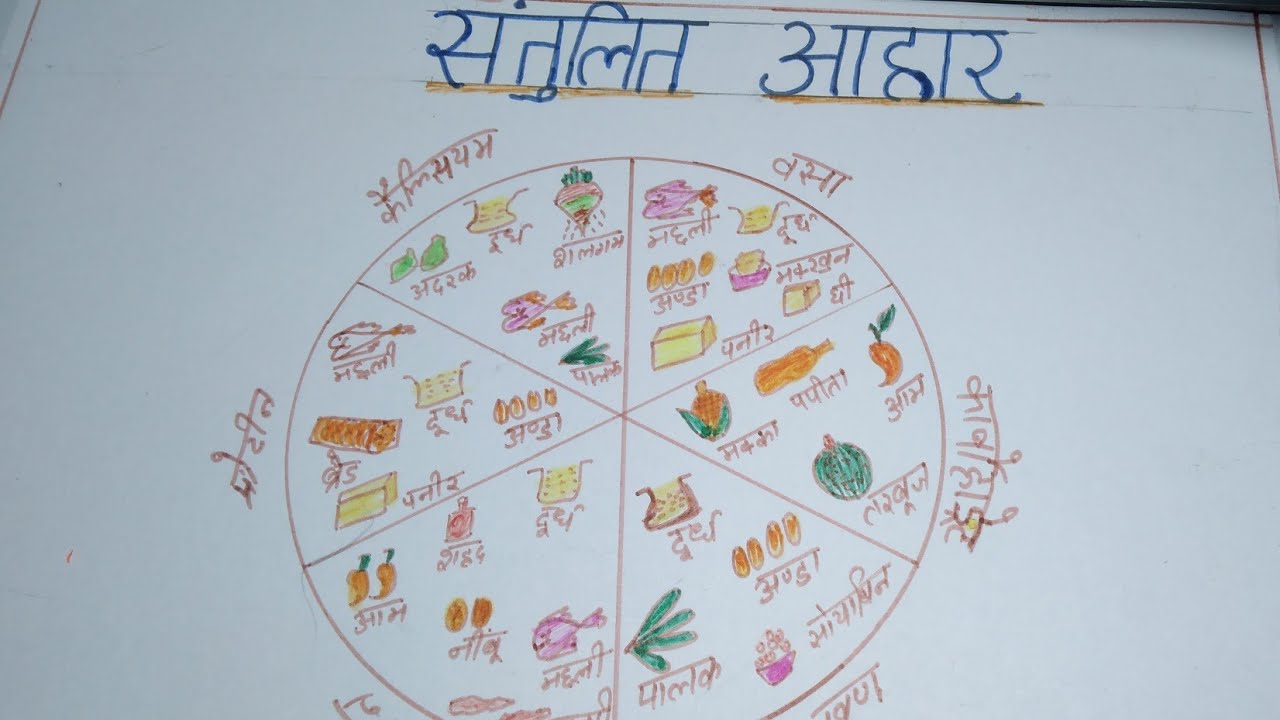 संतुलित आहार
कैल्सियम
दूध
शलगम
अदरक
मछली
पालक
वसा
मछली
दूध
अण्डा
मक्खन
घी
पनीर
कार्बोहाईड्रेट
आम
पपीता
मक्का
तरबूज
प्रोटीन
मछली
दूध
अण्डा
ब्रैड
पनीर
दूध
शहद
आम
नींबू
मछली
दूध
अण्डा
सोयाबिन
पालक